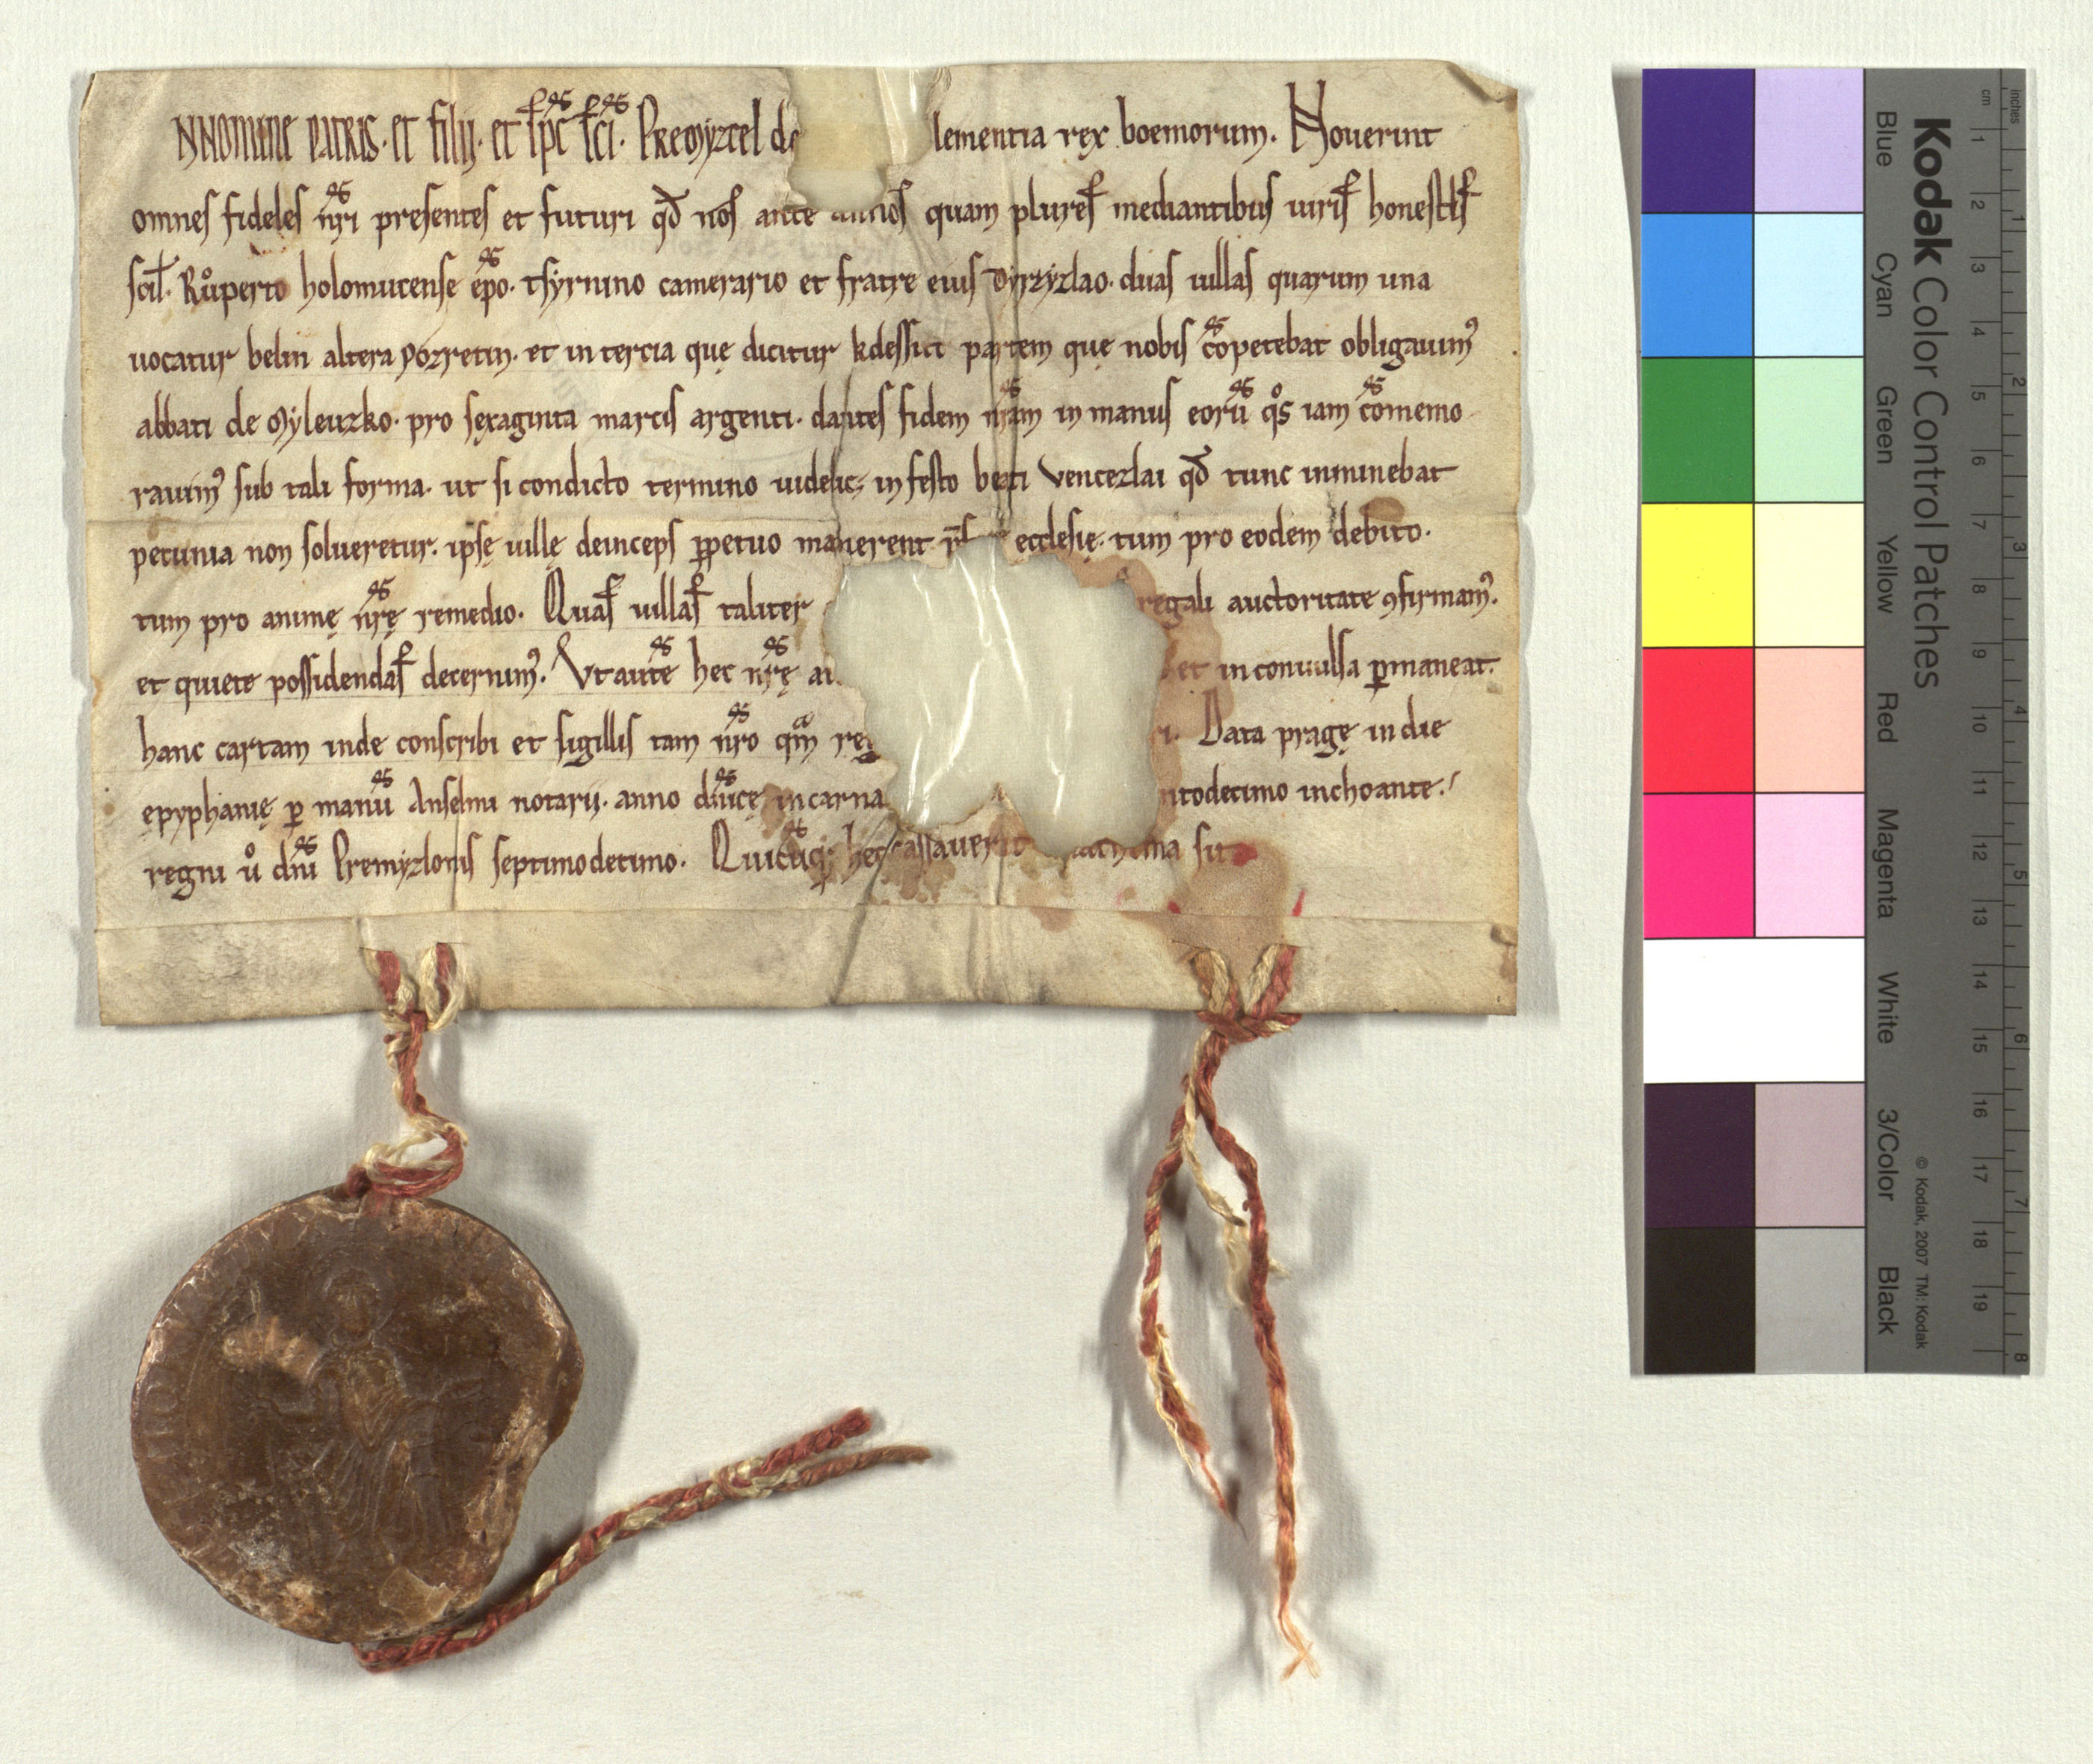 NNOMINE PATRIS. ET FILII. ET sp̄c sc̄i. Premyzcel de lementia rex boemorum. Nouerint
omnes fideles nr̄i presentes et futuri qđ nos ante annos quam plures mediantibus uiris honestis
scil. Růperto holomucense ep̄o. tsyrnino camerario et fratre eius dyrzyzlao. duas uillas quarum una
uocatur belin altera pozretin. et in tercia quę dicitur kdessici partem quę nobis cōpetebat obligauim᷒
abbati de Myleuzko. pro sexaginta marcis argenti. dantes fidem nr̄am in manus eorū q̊s iam cōmemo
rauim᷒ sub tali forma. ut si condicto termino uidelic; in festo beati Vencezlai qđ tunc imminebat
pecunia non solueretur. ipsę uillę deinceps ꝑpetuo manerent ecclesię. tum pro eodem debito.
tum pro animę nr̄ę remedio. Quas uillas taliter regali auctoritate ꝯfirmam᷒.
et quiete possidendas decernim᷒. Vt autē hec nr̄ę au et inconuulsa ꝑmaneat.
hanc cartam inde conscribi et sigillis tam nr̄o qͣm reg ri. Data pragę in die
ępyphanię ꝑ manū Anselmi notarij. anno dn̄icę incarna ntodecimo inchoante.
regni ů dn̄i Premyzlonis septimodecimo. Quicūq; hec cassauerit anathema sit
Kodak Color Control Patches
Blue Cyan Green Yellow Red Magenta White 3/Color Black
© Kodak, 2007 TM: Kodak
cm 1 2 3 4 5 6 7 8 9 10 11 12 13 14 15 16 17 18 19
inches 1 2 3 4 5 6 7 8